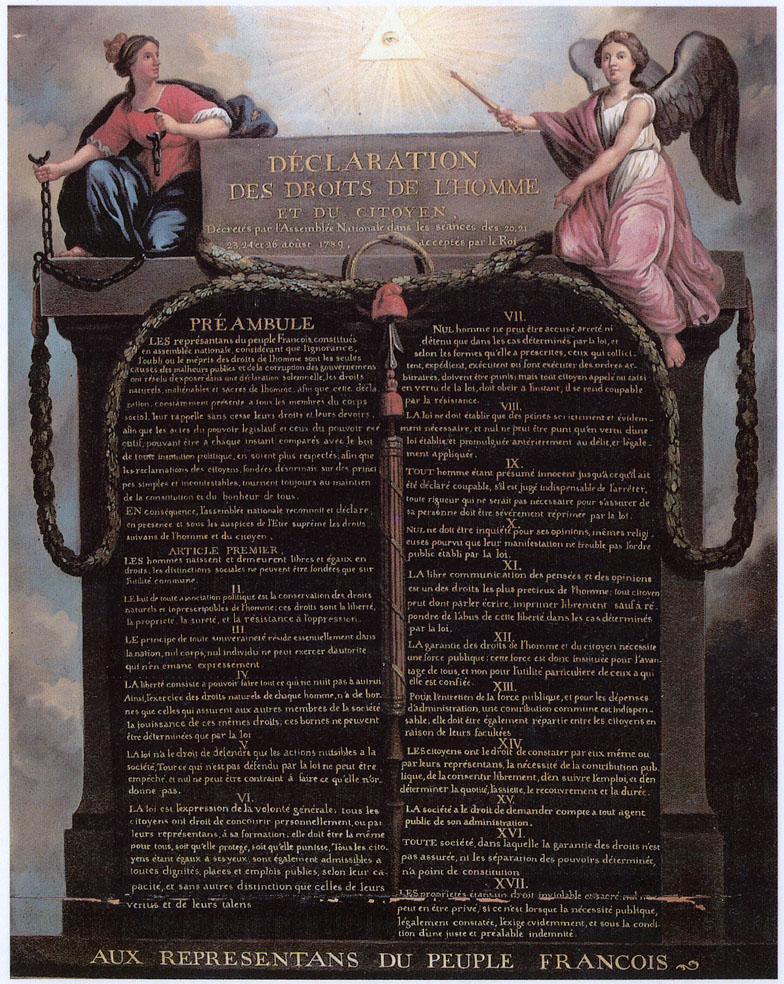 DÉCLARATION
DES DROITS DE L'HOMME
ET DU CITOYEN,
Décretés par l'Assemblée Nationale dans les séances des 20, 21
23, 24 et 26 août 1789, acceptés par le Roi
PRÉAMBULE
LES représentans du peuple François, constitués
en assemblée nationale, considérant que l'ignorance,
l'oubli ou le mépris des droits de l'homme sont les seules
causes des malheurs publics et de la corruption des gouvernemens
ont résolu d'exposer dans une déclaration solemnelle, les droits
naturels, inaliénables et sacrés de l'homme; afin que cette décla
ration, constamment présente a tous les membres du corps
social, leur rappelle sans cesse leurs droits et leurs devoirs,
afin que les actes du pouvoir législatif et ceux du pouvoir exé
cutif, pouvant être a chaque instant comparés avec le but
de toute institution politique, en soient plus respectés; afin que
les réclamations des citoyens, fondées désormais sur des princi
pes simples et incontestables, tournent toujours au maintien
de la constitution et du bonheur de tous.
EN conséquence, l'assemblée nationale reconnoit et déclare,
en presence et sous les auspices de l'Etre suprême les droits
suivans de l'homme et du citoyen,
ARTICLE PREMIER,
LES hommes naissent et demeurent libres et égaux en
droits, les distinctions sociales ne peuvent être fondées que sur
l'utilité commune,
II.
LE but de toute association politique est la conservation des droits
naturels et inprescriptibles de l'homme; ces droits sont la liberté,
la propriété, la sureté, et la résistance à l'oppression.
III
LE principe de toute souveraineté réside essentiellement dans
la nation, nul corps, nul individu ne peut exercer d'autorité
qui n'en émane expressement.
IV
LA liberté consiste a pouvoir faire tout ce qui ne nuit pas à autrui,
Ainsi, l'exercice des droits naturels de chaque homme, n'a de bor-
nes que celles qui assurent aux autres membres de la société
la jouissance de ces mêmes droits; ces bornes ne peuvent
être déterminées que par la loi
V
LA loi n'a le droit de défendre que les actions nuisibles à la
société, Tout ce qui n'est pas défendu par la loi ne peut être
empêché, et nul ne peut être contraint à faire ce qu'elle n'or-
donne pas.
VI.
LA loi est l'expression de la volonté générale; tous les
citoyens ont droit de concourir personnellement, ou par
leurs représentans, à sa formation; elle doit être la même
pour tous, soit qu'elle protege, soit qu'elle punisse, Tous les cito
yens étant égaux à ses yeux, sont également admissibles a
toutes dignités, places et emplois publics, selon leur ca
pacité, et sans autres distinction que celles de leurs
vertus et de leurs talens
VII.
NUL homme ne peut être accusé, arreté ni
détenu que dans les cas déterminés par la loi, et
selon les formes qu'elle a prescrites, ceux qui sollici-
tent, expédient, exécutent ou font exécuter des ordres ar-
bitraires, doivent être punis; mais tout citoyen appelé ou saisi
en vertu de la loi, doit obéir à l'instant, il se rend coupable
par la résistance.
VIII.
LA loi ne doit établir que des peines strictement et évidem-
ment nécessaire, et nul ne peut être puni qu'en vertu d'une
loi établie et promulguée antérierement au délit, et légale-
ment appliquée.
IX.
TOUT homme étant présumé innocent jusqu'à ce qu'il ait
été déclaré coupable, s'il est jugé indispensable de l'arrêter,
toute rigueur qui ne serait pas nécessaire pour s'assurer de
sa personne doit être sévèrement réprimée par la loi.
X.
NUL ne doit être inquiété pour ses opinions, mêmes religi
euses pourvu que leur manifestation ne trouble pas l'ordre
public établi par la loi.
XI.
LA libre communication des pensées et des opinions
est un des droits les plus precieux de l'homme; tout citoyen
peut dont parler écrire, imprimer librement sauf à ré
pondre de l'abus de cette liberté dans les cas déterminés
par la loi.
XII.
LA garantie des droits de l'homme et du citoyen nécessite
une force publique; cette force est donc instituée pour l'avan
tage de tous, et non pour l'utilité particuliere de ceux a qui
elle est confiée.
XIII.
POUR l'entretien de la force publique, et pour les dépenses
d'administration, une contribution commune est indispen-
sable; elle doit être également répartie entre les citoyens en
raison de leurs facultées
XIV.
LES citoyens ont le droit de constater par eux même ou
par leurs représentans, la nécessité de la contribution pub
lique, de la consentir librement, d'en suivre l'emploi, et d'en
déterminer la quotité, l'assiette, le recouvrement et la durée.
XV.
LA société a le droit de demander compte a tout agent
public de son administration.
XVI.
TOUTE société, dans laquelle la garantie des droits n'est
pas assurée, ni les séparation des pouvoirs déterminée,
n'a point de constitution
XVII.
LES propriétés étant un droit inviolable et sacré, nul ne
peut en être privé, si ce n'est lorsque la nécessité publique,
légalement constatée, l'exige evidemment, et sous la condi
tion d'une juste et préalable indemnité.
AUX REPRESENTANS DU PEUPLE FRANCOIS